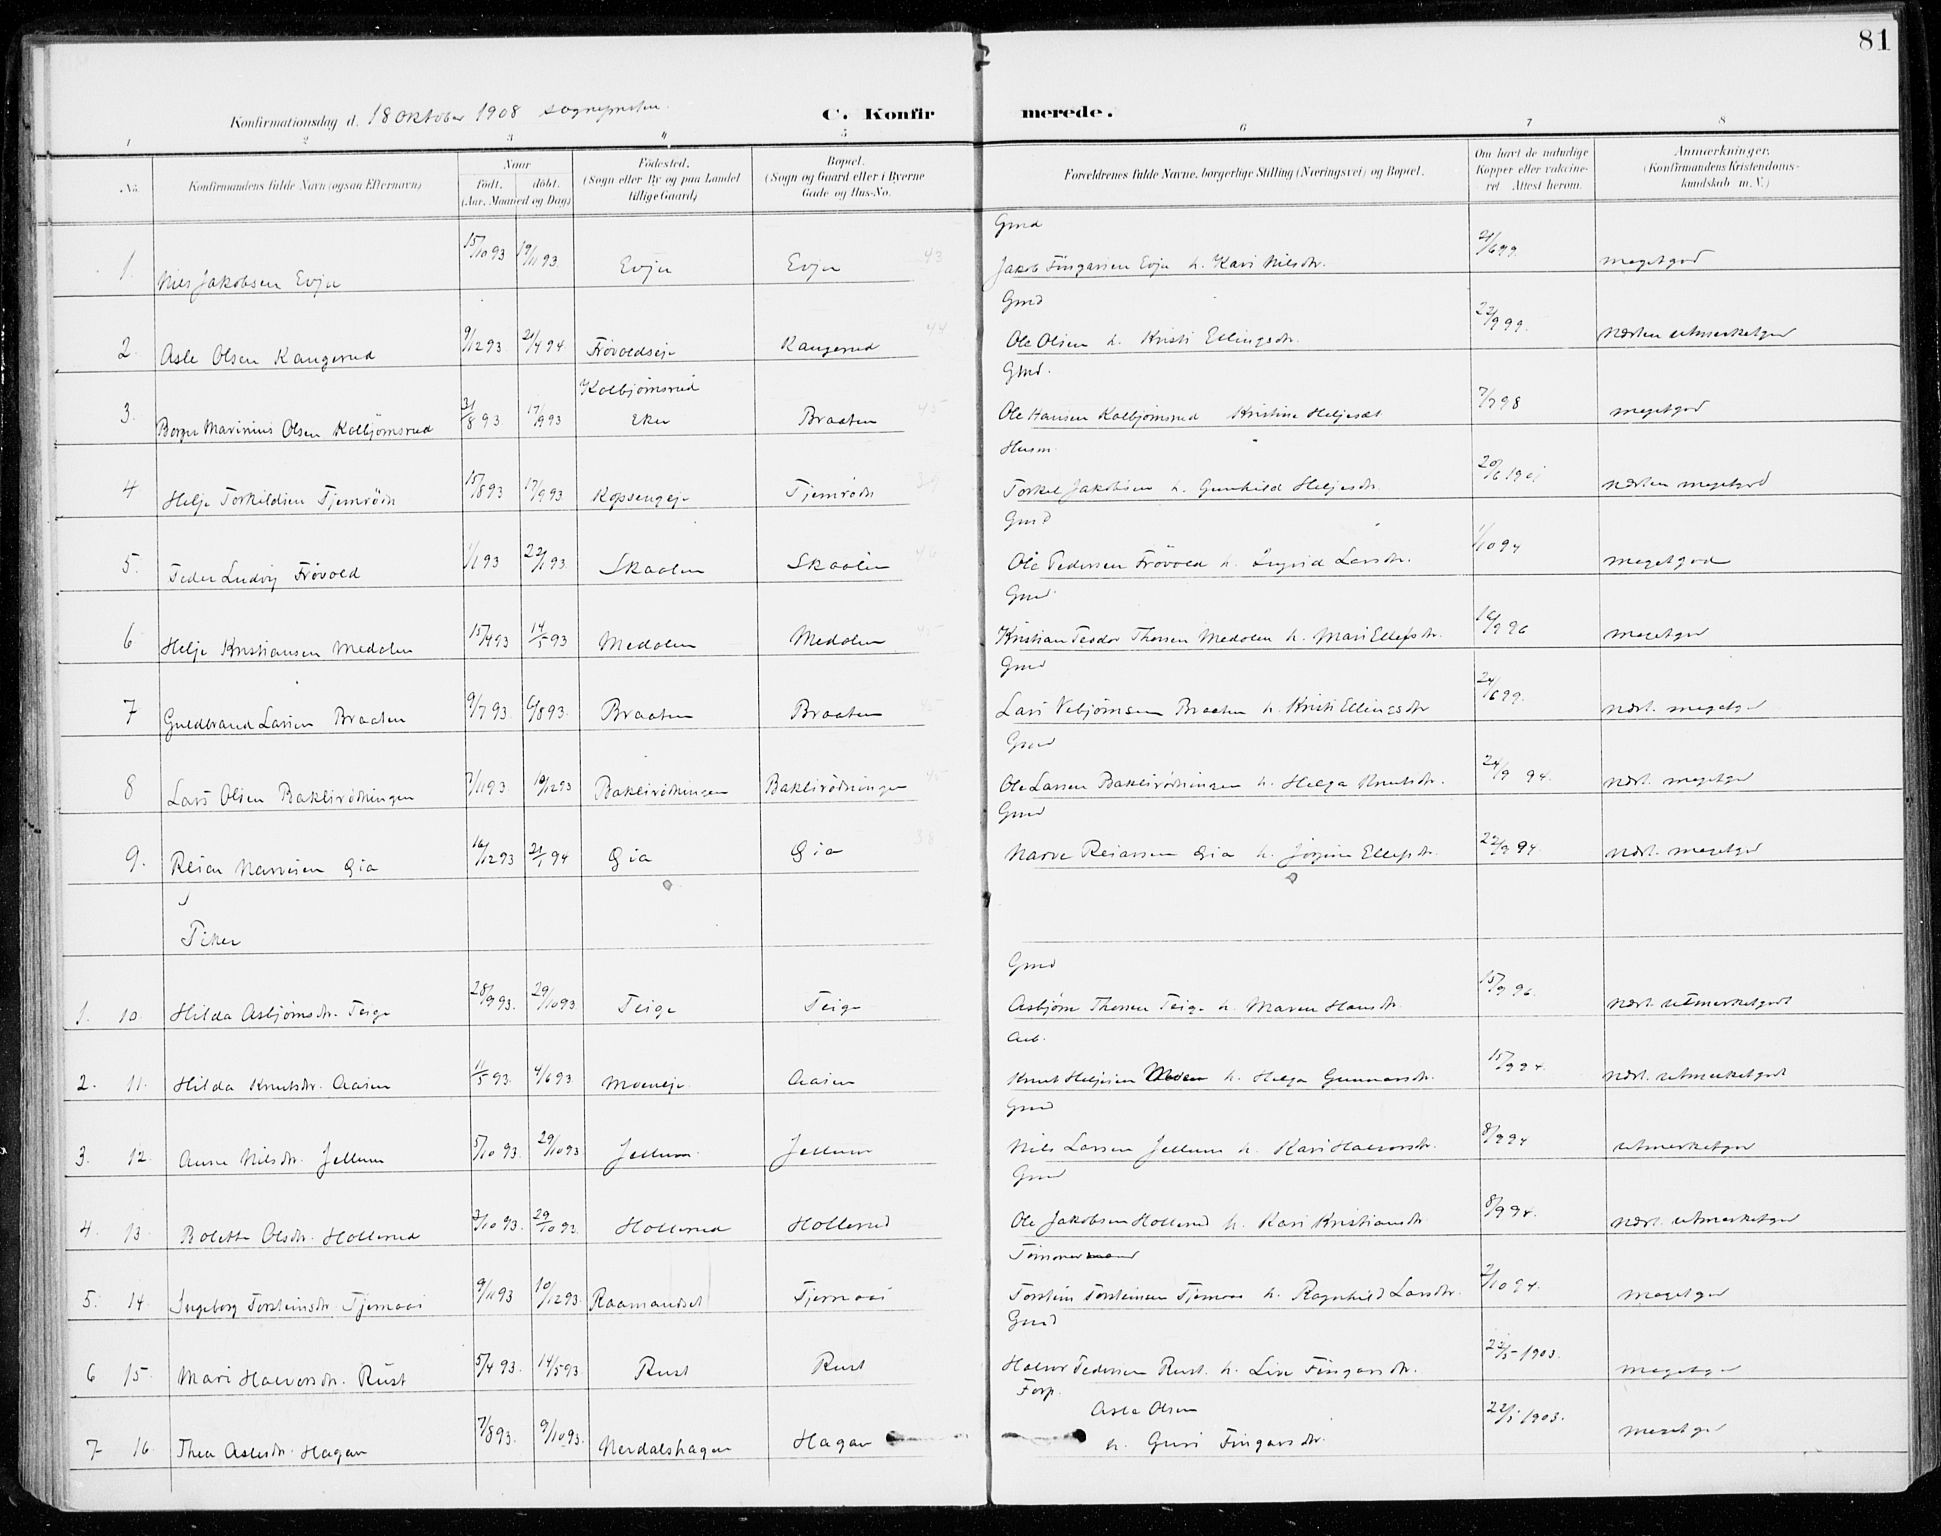 81
Konfirmationsdag d. 18 Oktober 1908 sognepresten
C. Konfirmerede.
1 2 3 4 5 6 7 8
No. Konfirmandens fulde Navn (ogsaa Efternavn) Naar født. døbt. (Aar, Maaned og Dag) Fødested. (Sogn eller By og paa Landet tillige Gaard) Bopæl. (Sogn og Gaard eller i Byerne Gade og Hus-No. Forældrenes fulde Navne, borgerlige Stilling (Næringsvei) og Bopæl. Om havt de naturlige Kopper eller vakcineret Attest herom. Anmærkninger. (Konfirmandens Kristendomskundskab m. V.)
Gmd
1. Nils Jakobsen Evju 15/10 93 19/11 93. Evju Evju 43 Jakob Fingarsen Evju h. Kari Nilsdtr. 21/6 99. megetgod
Gmd
2. Asle Olsen Kangerud 9/12 93. 21/4 94 Frövoldseje Kangerud 44 Ole Olsen h. Kristi Ellingsdtr. 22/9 99. næsten utmerketgod
Gmd.
3. Borger Marinius Olsen Kolbjörnsrud 31/8 93. 17/9 93 Kolbjörnsrud Eker Braaten 45 Ole Hansen Kolbjörnsrud Kristine Heljesdt 7/7 98 megetgod
Husm.
4 Helje Torkildsen Tjernrödn 15/8 93 17/9 93 Kopsengeje Tjernrödn Torkel Jakobsen h. Gunhild Heljesdtr. 20/6 1901 næsten megetgod
Gmd
5. Peder Ludvig Frövold 1/1 93 22/1 93. Skaalen Skaalen 46 Ole Pedersen Frövold h. Ingrid Larsdtr. 1/10 94 megetgod
Gmd
6 Helje Kristiansen Medalen 15/4 93 14/5 93 Medalen Medalen Kristian Teodor Thorsen Medalen h. Mari Ellefsdtr. 16/9 96 megetgod
Gmd
7 Guldbrand Larsen Braaten 9/7 93. 6/8 93. Braaten Braaten 45 Lars Vebjörnsen Braaten h. Kristi Ellingsdtr 24/6 99. næst. megetgod
Gmd
8 Lars Olsen Baklirödningen 7/11 93 10/12 93 Baklirödningen Baklirödningen 45 Ole Larsen Baklirödningen h. Helga Knutsdtr. 24/9 94. næst. megetgod
Gmd
9. Reiar Narvesen Gia 16/12 93 21/1 94 Gia Gia 38 Narve Reiarsen Gia h. Jörgine Ellefsdtr. 22/9 94. næst. megetgod
Piker
Gmd
1. 10. Hilda Asbjörnsdtr. Teige 28/9 93. 29/10 93 Teige Teige Asbjörn Thorsen Teige h. Maren Hansdtr. 15/9 96. næst. utmerketgod
Arb.
2. 11. Hilda Knutsdtr. Aasen 11/5 93. 4/6 93. Moeneje Aasen Knut Heljesen Moen h. Helga Gunnarsdtr. 15/9 94. næst. utmerketgod
Gmd
3. 12. Anne Nilsdtr. Jellum 5/10 93. 29/10 93 Jellum Jellum Nils Larsen Jellum h. Kari Halvorsdtr. 8/9 94 utmerketgod
Gmd
4. 13. Bolette Olsdtr. Hollerud 3/10 93. 29/10 93. Hollerud Hollerud Ole Jakobsen Hollerud h. Kari Kristiansdtr 8/9 94. næst. utmerketgod
Tömmermand
5. 14. Ingeborg Torsteinsdtr. Tjernaas 9/11 93 10/12 93. Raamandset Tjernaas Torstein Torsteinsen Tjernaas h. Ragnhild Larsdtr. 2/10 94. megetgod
Gmd
6 15. Mari Halvorsdtr. Rust 5/4 93. 14/5 93 Rust Rust Halvor Pedersen Rust h. Live Fingarsdtr. 22/5 1903. megetgod
Forp.
7 16. Thea Aslesdtr. Hagan 7/8 93. 9/10 93. Nerdalshagan Hagan Asle Olsen
h. Guri Fingarsdtr. 22/5 1903. megetgod